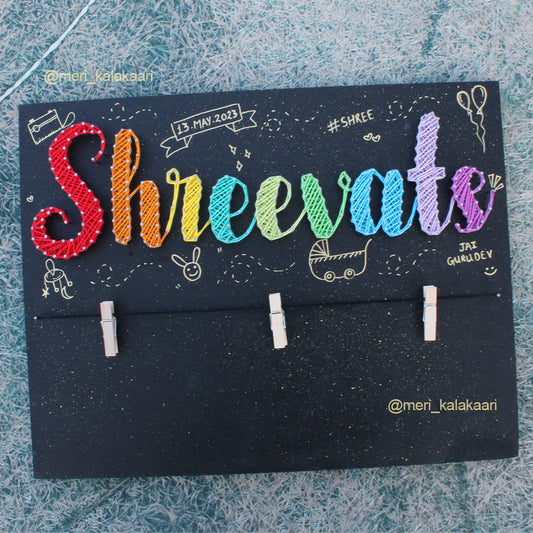 @meri_kalakaari
13.MAY.2023
#SHREE
Shreevats
JAI
GURUDEV
@meri_kalakaari